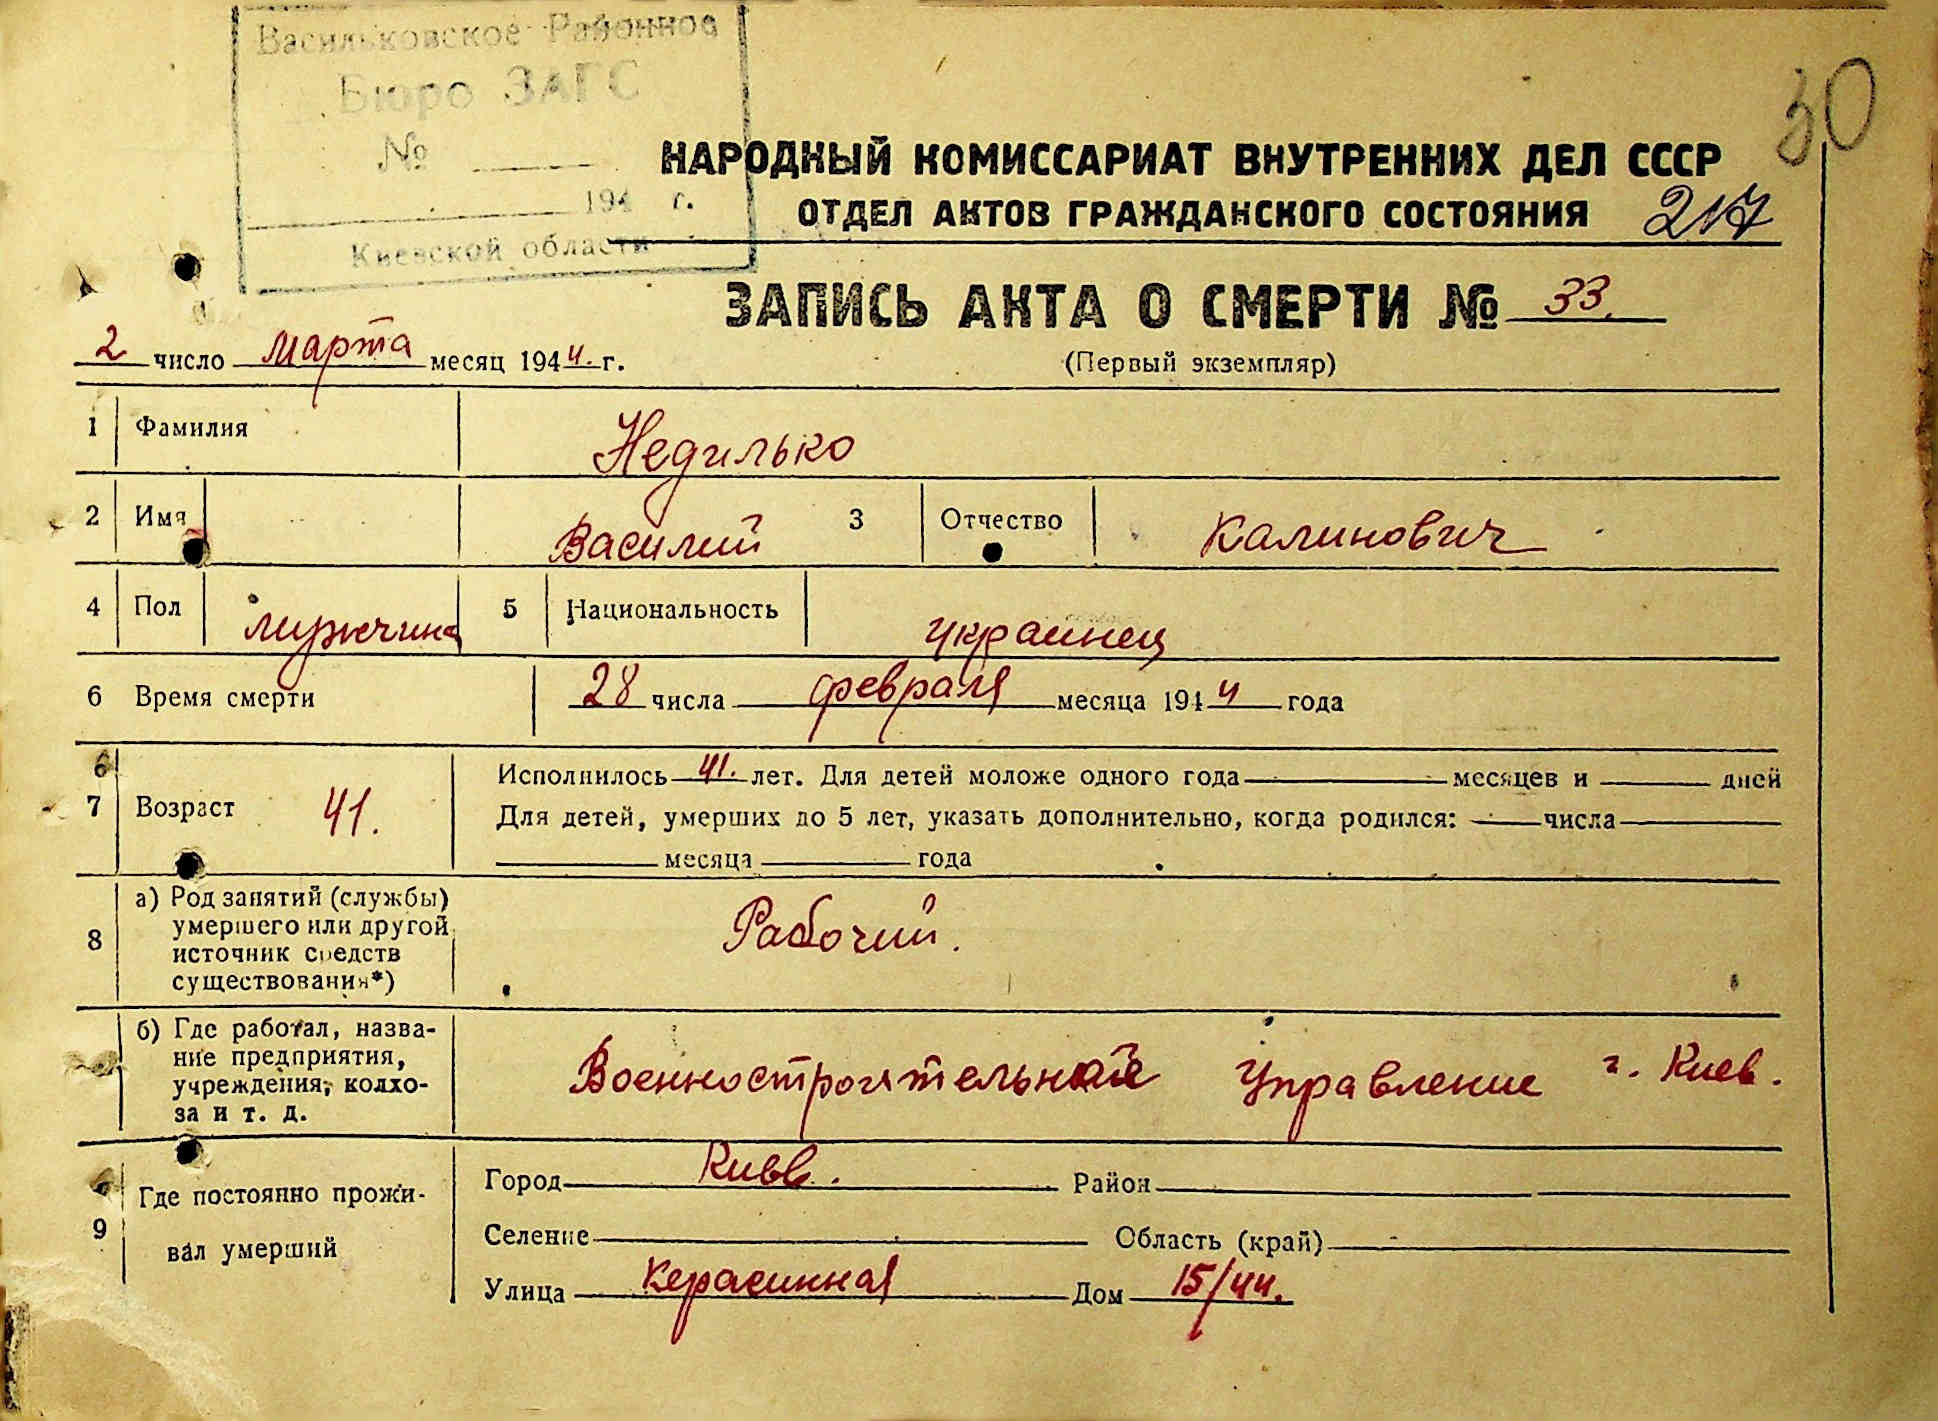 Васильковское Районное
Бюро ЗАГС
№
194 г.
Киевской области
НАРОДНЫЙ КОМИССАРИАТ ВНУТРЕННИХ ДЕЛ СССР
ОТДЕЛ АКТОВ ГРАЖДАНСКОГО СОСТОЯНИЯ 217
ЗАПИСЬ АКТА О СМЕРТИ № 33.
2 число марта месяц 1944. г.
(Первый экземпляр)
1 Фамилия Недилько
2 Имя Василий 3 Отчество Калинович
4 Пол мужчина 5 Национальность украинец
6 Время смерти 28 числа февраля месяца 1944 года
6
7 Возраст 41. Исполнилось 41. лет. Для детей моложе одного года месяцев и дней
Для детей, умерших до 5 лет, указать дополнительно, когда родился: числа
месяца года
8 а) Род занятий (службы)
умершего или другой
источник средств
существования*)
Рабочий.
б) Где работал, назва-
ние предприятия,
учреждения, колхо-
за и т. д.
Управление г. Киев.
9 Где постоянно прожи-
вал умерший
Город Киев. Район
Селение Область (край)
Улица Керасинная Дом 15/44.